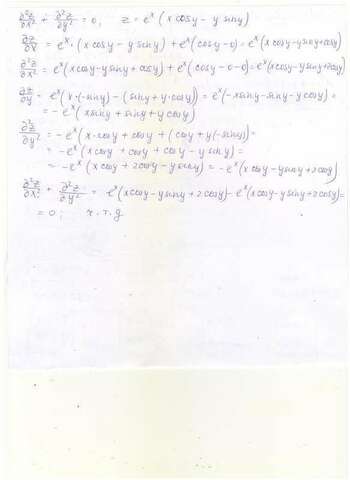 ∂²z/∂x² + ∂²z/∂y² = 0, z = eˣ(x cosy − y siny)
∂z/∂x = eˣ · (x cosy − y siny) + eˣ(cosy − 0) = eˣ(x cosy − y siny + cosy)
∂²z/∂x² = eˣ(x cosy − y siny + cosy) + eˣ(cosy − 0 − 0) = eˣ(x cosy − y siny + 2cosy)
∂z/∂y = eˣ(x·(−siny) − (siny + y·cosy)) = eˣ(−x siny − siny − y cosy) =
= −eˣ(x siny + siny + y cosy)
∂²z/∂y² = −eˣ(x·cosy + cosy + (cosy + y(−siny)) =
= −eˣ(x cosy + cosy + cosy − y siny) =
= −eˣ(x cosy + 2cosy − y siny) = −eˣ(x cosy − y siny + 2cosy)
∂²z/∂x² + ∂²z/∂y² = eˣ(x cosy − y siny + 2cosy) − eˣ(x cosy − y siny + 2cosy) =
= 0; ч.т.д.